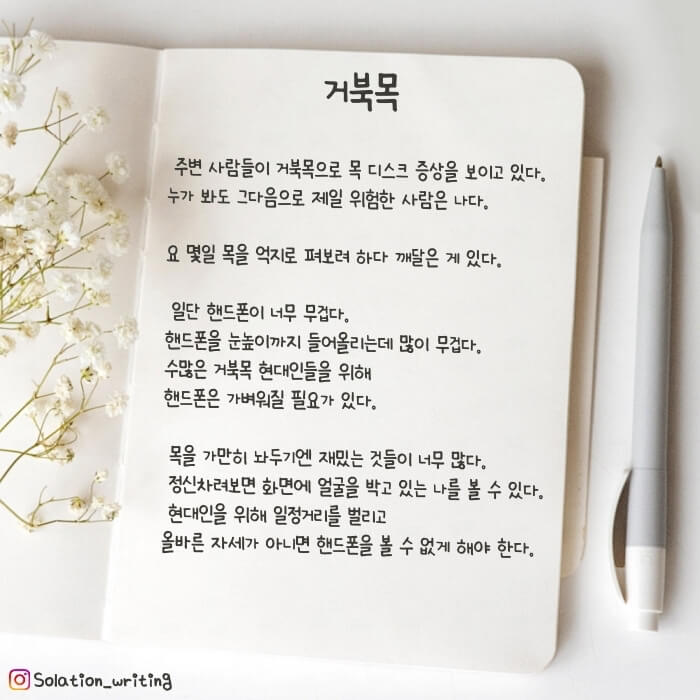 거북목
주변 사람들이 거북목으로 목 디스크 증상을 보이고 있다.
누가 봐도 그다음으로 제일 위험한 사람은 나다.
요 몇일 목을 억지로 펴보려 하다 깨달은 게 있다.
일단 핸드폰이 너무 무겁다.
핸드폰을 눈높이까지 들어올리는데 많이 무겁다.
수많은 거북목 현대인들을 위해
핸드폰은 가벼워질 필요가 있다.
목을 가만히 놔두기엔 재밌는 것들이 너무 많다.
정신차려보면 화면에 얼굴을 박고 있는 나를 볼 수 있다.
현대인을 위해 일정거리를 벌리고
올바른 자세가 아니면 핸드폰을 볼 수 없게 해야 한다.
Solation_writing